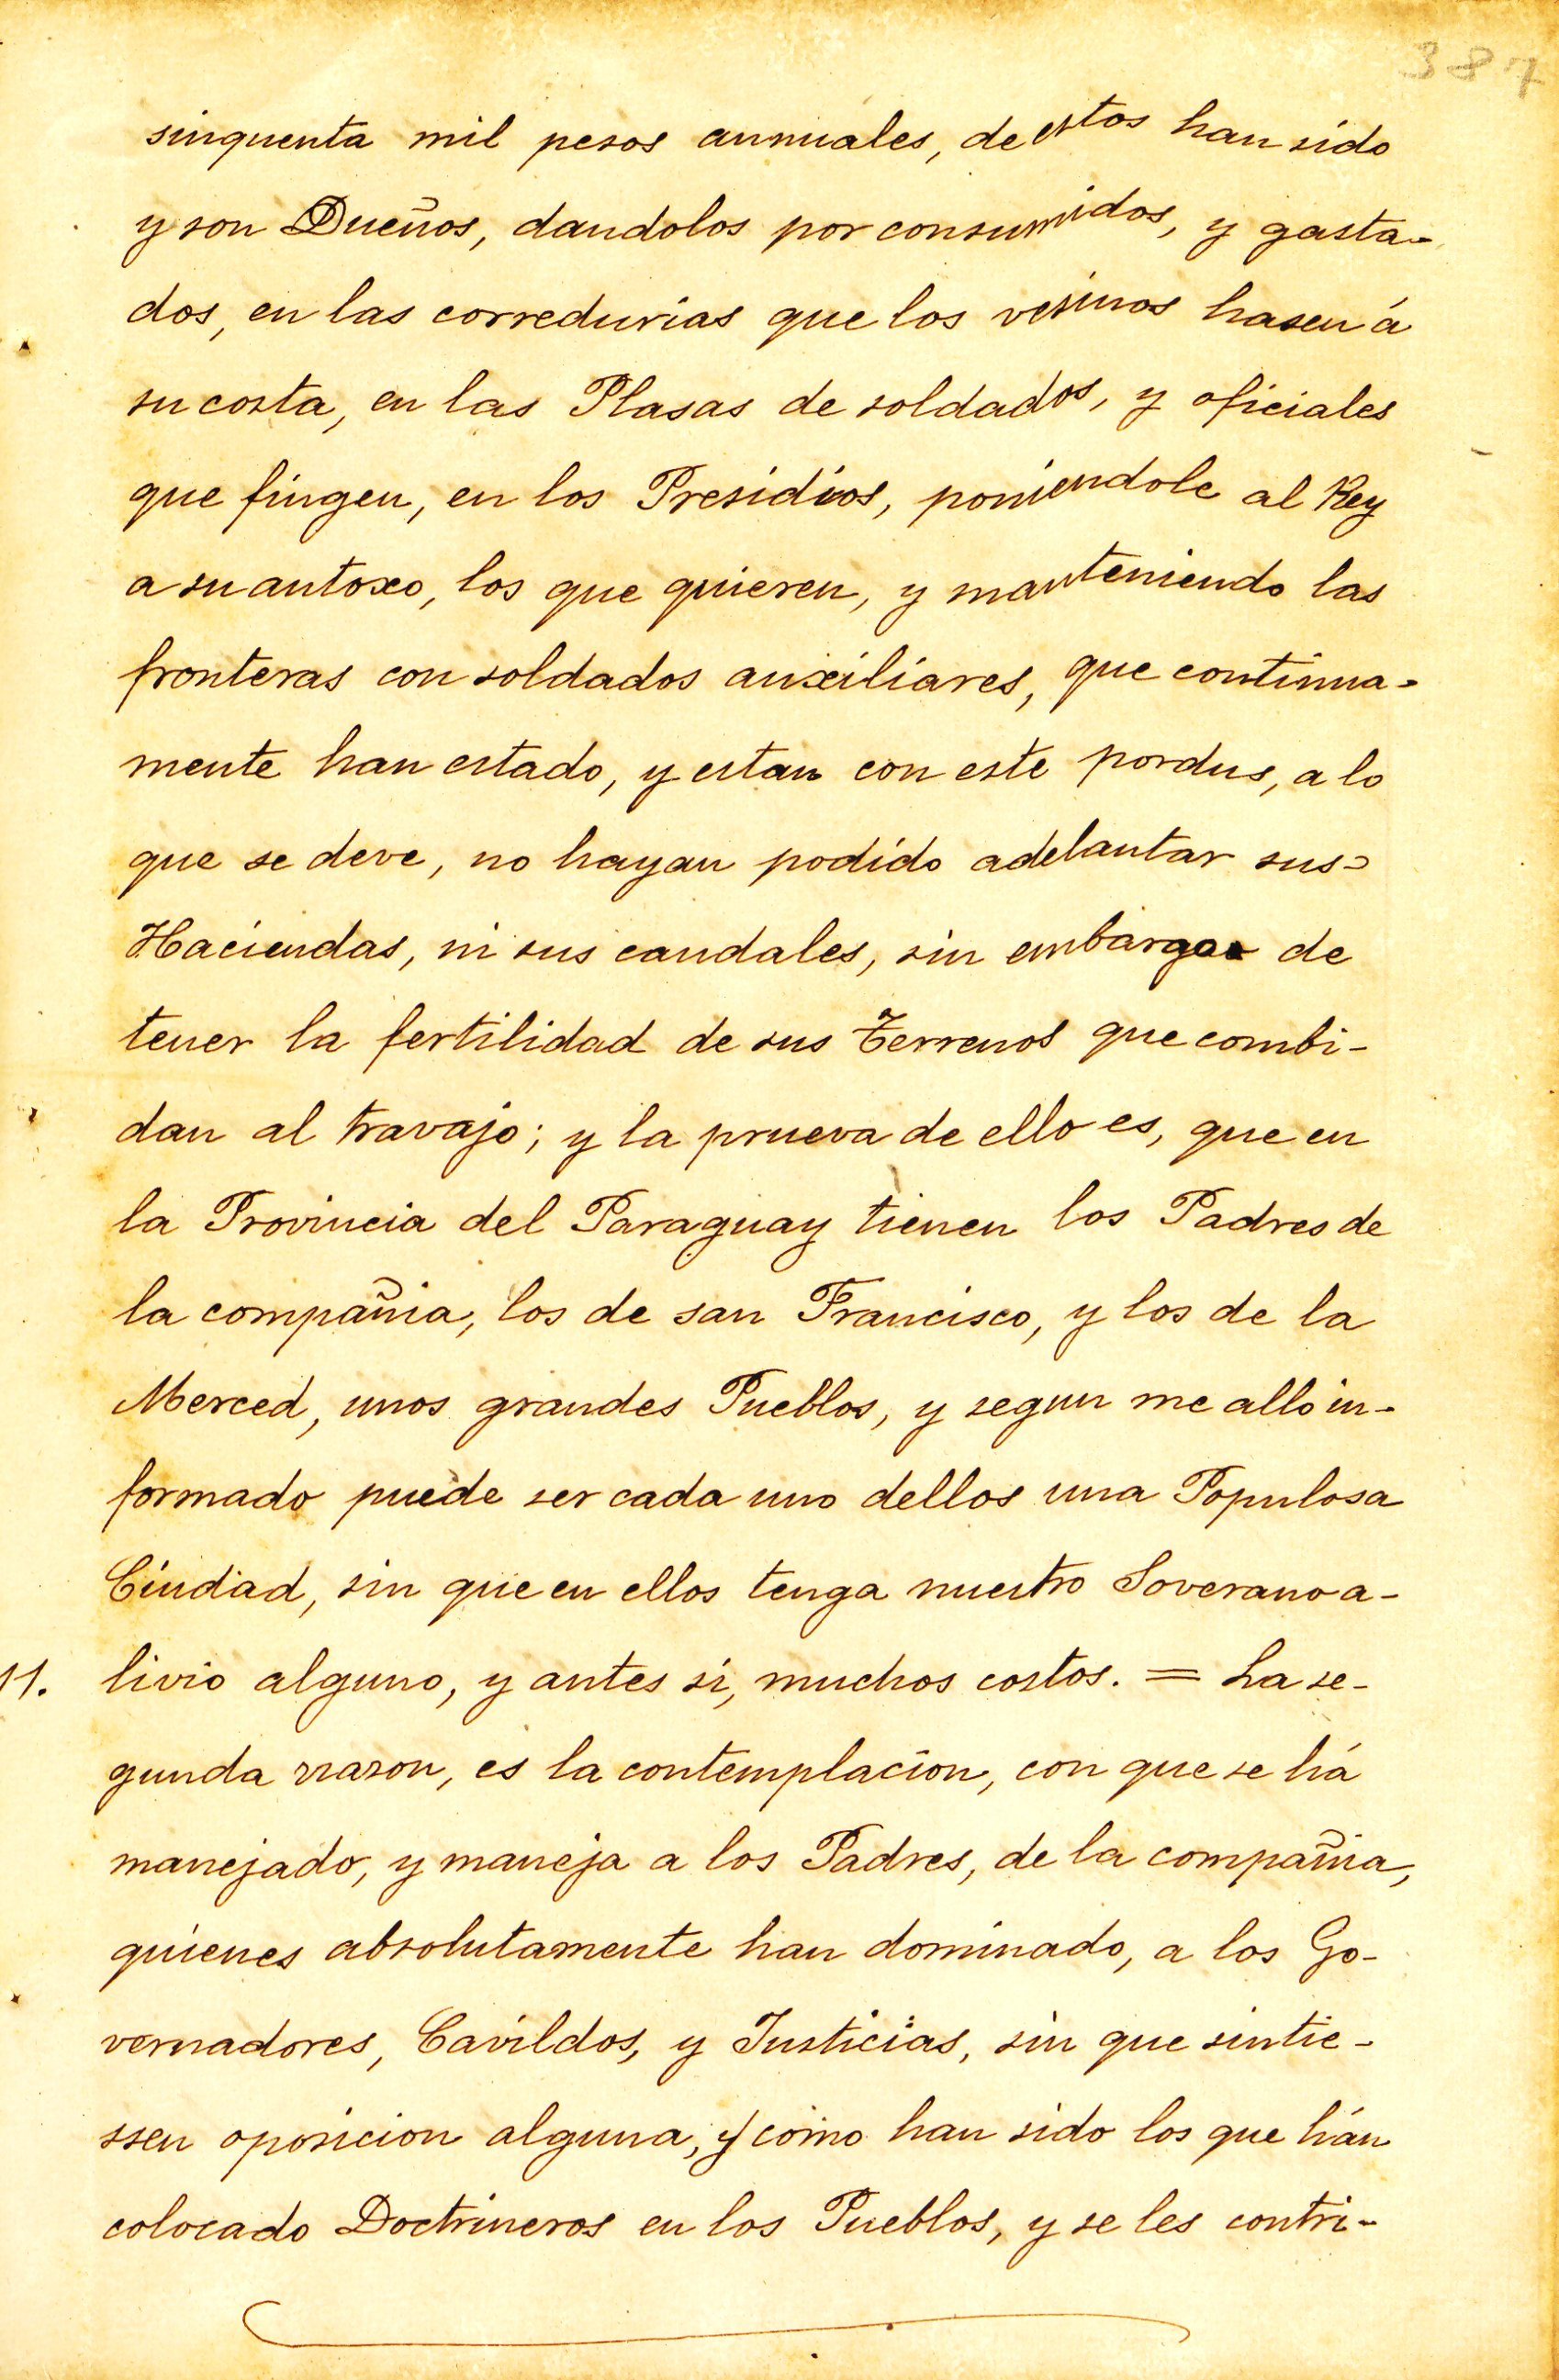 387
sinquenta mil pesos annuales, de estos han sido
y son Dueños, dandolos por consumidos, y gasta-
dos, en las corredurias que los vesinos hasen á
su costa, en las Plasas de soldados, y oficiales
que fingen, en los Presidios, poniendole al Rey
a su antoxo, los que quieren, y manteniendo las
fronteras con soldados auxiliares, que continua-
mente han estado, y estan con este pordus, a lo
que se deve, no hayan podido adelantar sus=
Haciendas, ni sus caudales, sin embargo de
tener la fertilidad de sus Terrenos que combi-
dan al travajo; y la prueva de ello es, que en
la Provincia del Paraguay tienen los Padres de
la compañia, los de san Francisco, y los de la
Merced, unos grandes Pueblos, y segun me allo in-
formado puede ser cada uno dellos una Populosa
Ciudad, sin que en ellos tenga nuestro Soverano a-
11. livio alguno, y antes si, muchos costos. = La se-
gunda rrason, es la contemplacion, con que se há
manejado, y maneja a los Padres, de la compañia,
quienes absolutamente han dominado, a los Go-
vernadores, Cavildos, y Justicias, sin que sintie-
ssen oposicion alguna, y como han sido los que hán
colocado Doctrineros en los Pueblos, y se les contri-